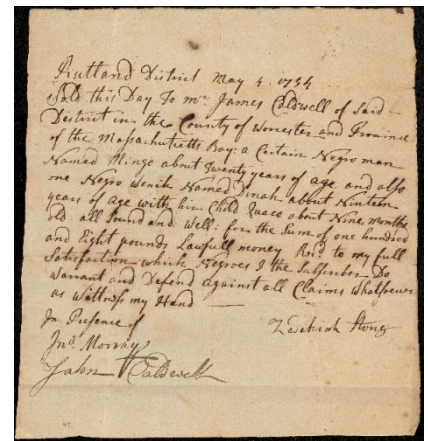 Rutland District May 4. 1754
Sold this Day To Mr. James Caldwell of Said
District in the County of Worcester and Province
of the Massachusetts Bay: a Certain Negro man
Named Mingo about Twenty years of age and also
one Negro wench Named Dinah about Ninteen
years of age with his Child Quaco about Nine months
old: all Sound and Well: for the Sum of one hundred
and Eight pounds Lawfull money Recd to my full
Satisfaction which Negroes I the Subscriber Do
warrant and Defend against all Claims Whatsoever
as Wittness my Hand
In Presence of
Zedekiah Stone
Jno. Morray
John Caldwell